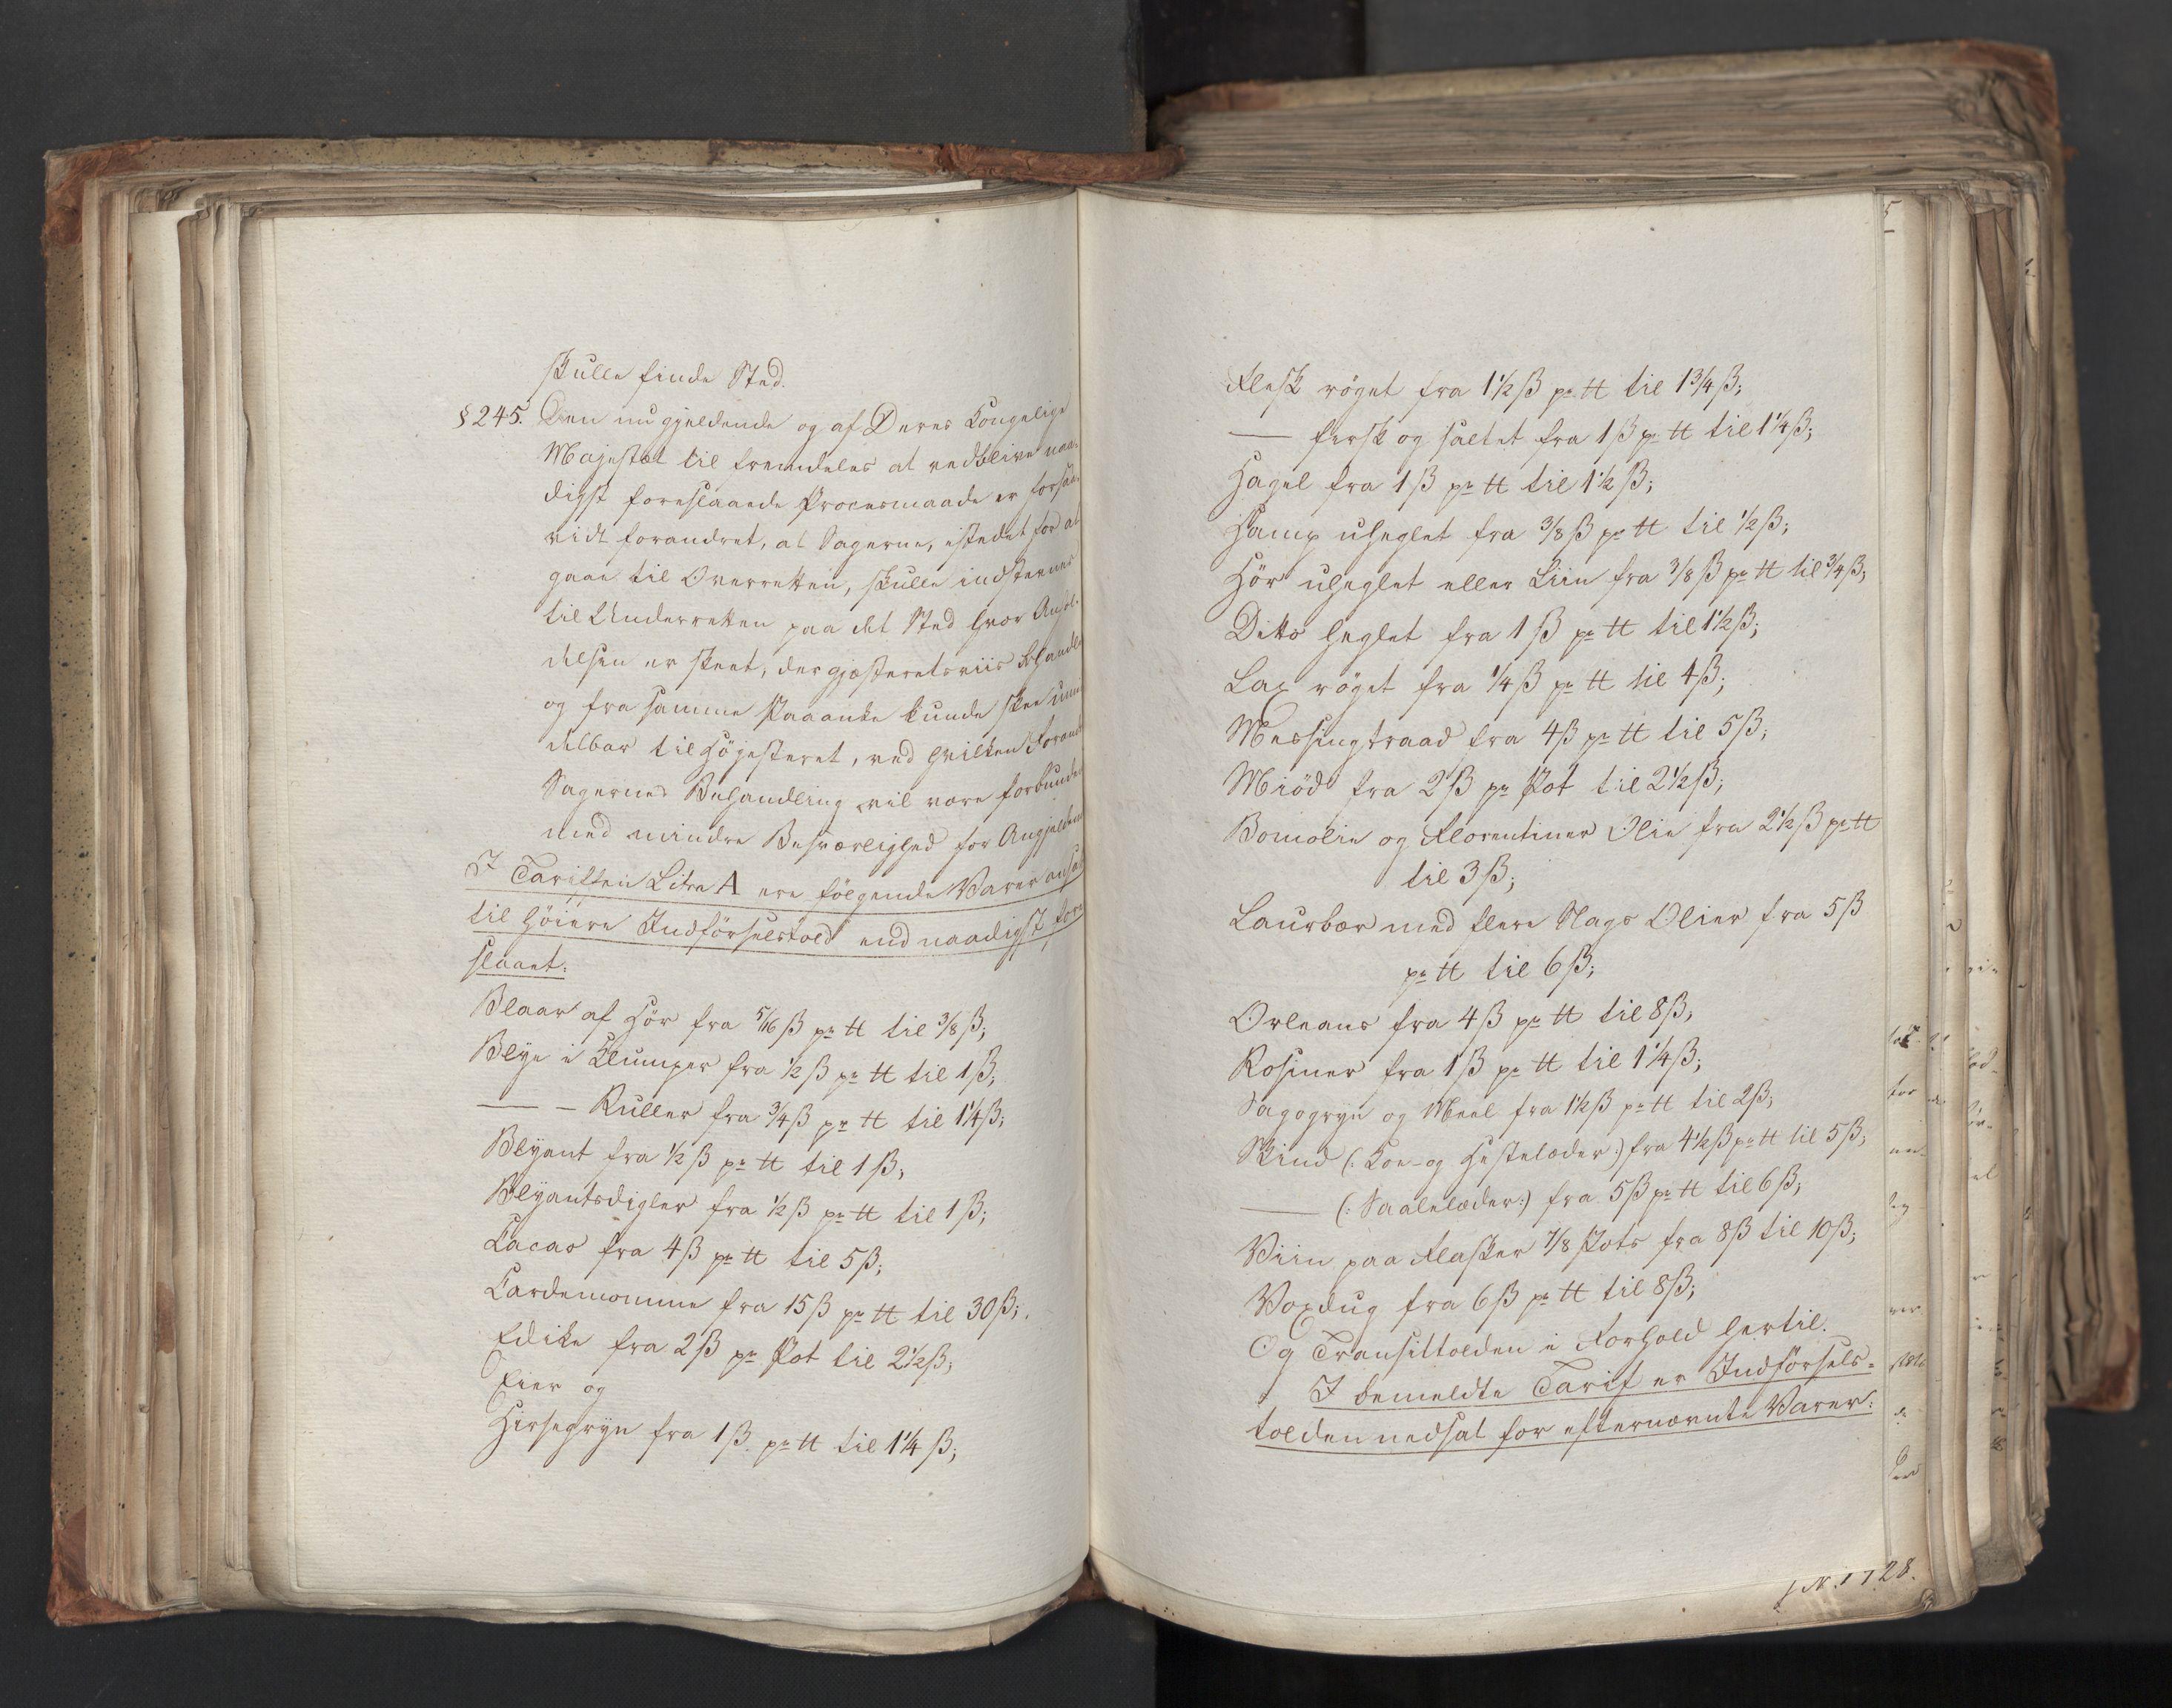 skulle finde Sted.
§ 245. Den nu gjeldende og af Deres Kongelige
Majestæt til fremdeles at vedblive naa-
digst foreslaaede Procesmaade er forsaa-
vidt forandret, at Sagerne, istedet for at
gaae til Overretten, skulle indstevnes
til Underretten paa det Sted hvor Anhol-
delsen er skeet, der gjæsteretsviis behandles
og fra samme Paaanke kunde skee umid
delbar til Høiesteret, ved hvilken Forand
Sagernes Behandling vil være forbunden
med mindre Besværlighed for Angjeldende
I Tariffen Litra A ere følgende Varer ansat
til høiere Indførselstold end naadigst fore
slaaet:
Blaar af Hør fra 5/16 ß pr ℔ til 3/8 ß;
Blye i Klumper fra 1/2 ß pr ℔ til 1 ß;
— — Ruller fra 3/4 ß pr ℔ til 1 1/4 ß;
Blyant fra 1/2 ß pr ℔ til 1 ß;
Blyantsdigler fra 1/2 ß pr ℔ til 1 ß;
Cacao fra 4 ß pr ℔ til 5 ß;
Cardemomme fra 15 ß pr ℔ til 30 ß;
Edike fra 2 ß pr Pot til 2 1/2 ß;
Eier og
Hirsegryn fra 1 ß pr ℔ til 1 1/4 ß;
Flesk røget fra 1 1/2 ß pr ℔ til 1 3/4 ß;
— fersk og saltet fra 1 ß pr ℔ til 1 1/4 ß;
Hagel fra 1 ß pr ℔ til 1 1/2 ß;
Hamp uheglet fra 3/8 ß pr ℔ til 1/2 ß;
Hør uheglet eller Liin fra 3/8 ß pr ℔ til 3/4 ß;
Ditto heglet fra 1 ß pr ℔ til 1 1/2 ß;
Lax røget fra 1/4 ß pr ℔ til 4 ß;
Messingtraad fra 4 ß pr ℔ til 5 ß;
Miød fra 2 ß pr Pot til 2 1/2 ß;
Bomolie og Florentiner Olie fra 2 1/2 ß pr ℔
til 3 ß;
Laurbær med flere Slags Olier fra 5 ß
pr ℔ til 6 ß;
Orleans fra 4 ß pr ℔ til 8 ß;
Rosiner fra 1 ß pr ℔ til 1 1/4 ß;
Sagogryn og Meel fra 1 1/2 ß pr ℔ til 2 ß;
Skind (: Koe- og Hestelæder :) fra 4 1/2 ß pr ℔ til 5 ß;
— (: Saalelæder :) fra 5 ß pr ℔ til 6 ß;
Viin paa Flasker 7/8 Pots fra 8 ß til 10 ß;
Voxdug fra 6 ß pr ℔ til 8 ß;
Og Transittolden i Forhold hertil.
I bemeldte Tarif er Indførsels-
tolden nedsat for efternævnte Varer: